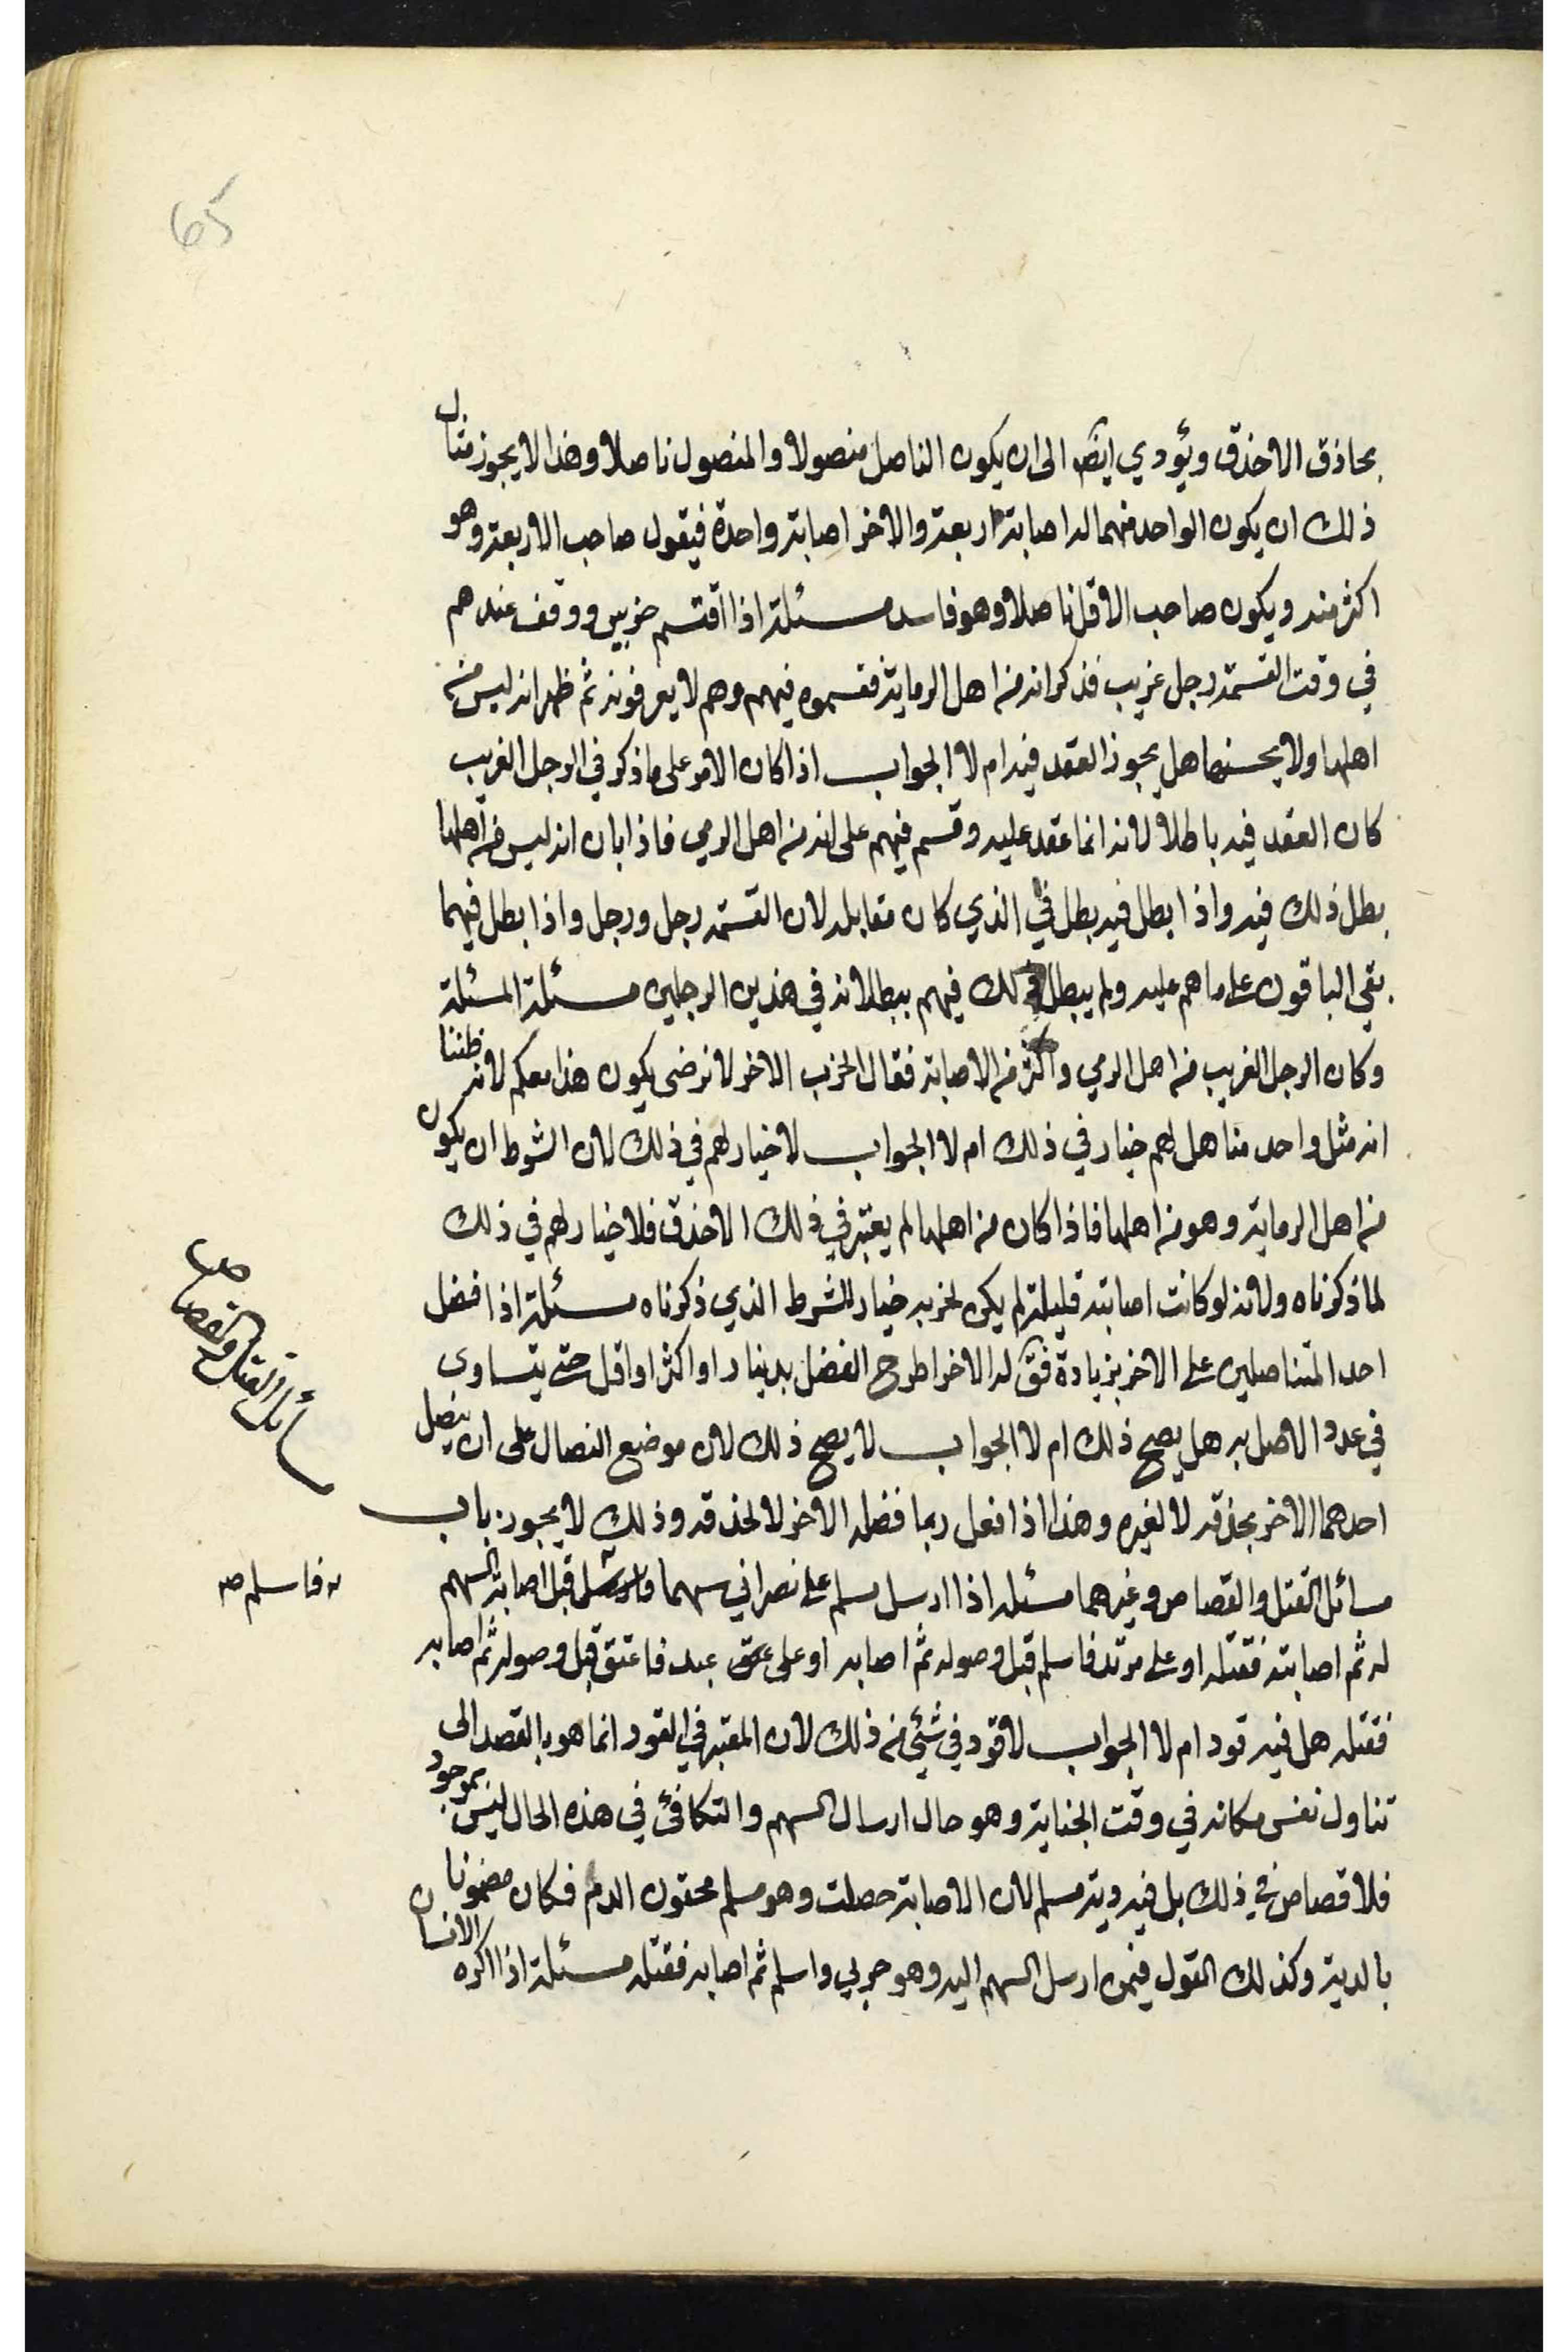 65
بحاذق الاخذق ويؤدي ايضا الى ان يكون الناصل منصولا والمنصول ناصلا وهذا لا يجوز مثال
ذلك ان يكون الواحد منهما له اصابة اربعة والاخر اصابة واحدة فيقول صاحب الاربعة وهو
اكثر منه ويكون صاحب الاقل ناصلا وهو فاسد مسئلة اذا اقتسم حزبين ووقف عندهم
في وقت القسمة رجل غريب فذكر انه من اهل الرماية فقسموه فيهم وهم لا يعرفونه ثم ظهر انه ليس من
اهلها ولا يحسنها هل يجوز العقد فيه ام لا الجواب اذا كان الامر على ما ذكر في الرجل الغريب
كان العقد فيه باطلا لانه انما عقد عليه وقسم فيهم على انه من اهل الرمي فاذا بان انه ليس من اهلها
بطل ذلك فيه واذا بطل فيه بطل في الذي كان مقابله لان القسمة رجل ورجل واذا بطل فيهما
بقي الباقون على ما هم عليه ولم يبطل ذلك فيهم ببطلانه في هذين الرجلين مسئلة المسئلة
وكان الرجل الغريب من اهل الرمي واكثر من الاصابة فقال الحزب الاخر لا نرضى يكون هذا معكم لانه ظننا
انه مثل واحد منا هل لهم خيار في ذلك ام لا الجواب لا خيار لهم في ذلك لان الشرط ان يكون
من اهل الرماية وهو من اهلها فاذا كان من اهلها لم يعتبر في ذلك الاخذق فلا خيار لهم في ذلك
لما ذكرناه ولانه لو كانت اصابته قليلة لم يكن لحزبه خيار للشرط الذي ذكرناه مسئلة اذا افضل
احد المتناصلين على الاخر بزيادة فق له الاخر اطرح الفضل بدينار او اكثر او اقل حتى يتساوى
في عدد الاصل به هل يصح ذلك ام لا الجواب لا يصح ذلك لان موضع النصال على ان ينصل
احدهما الاخر بحذقه لا لغيره وهذا اذا فعل ربما فضله الاخر لا لحذقه وذلك لا يجوز باب
مسائل القتل والقصاص وغيرهما مسئله اذا ارسل مسلم على نصراني سهما فاسلم قبل اصابة السهم
له ثم اصابته فقتله او على مرتد فاسلم قبل وصوله ثم اصابه او على عتق عبد فاعتق قبل وصوله ثم اصابه
فقتله هل فيه قود ام لا الجواب لا قود في شيء من ذلك لان المعتبر في القود انما هو بالقصد الى
تناول نفس مكانه في وقت الجناية وهو حال ارسال السهم والتكافئ في هذه الحال ليس بموجود
فلا قصاص في ذلك بل فيه دية مسلم لان الاصابة حصلت وهو مسلم محقون الدم فكان مضمونا
بالدية وكذلك القول فيمن ارسل السهم اليه وهو حربي واسلم ثم اصابه فقتله مسئلة اذا اكره الانسان
مسائل القتل والقصاص
فاسلم صه